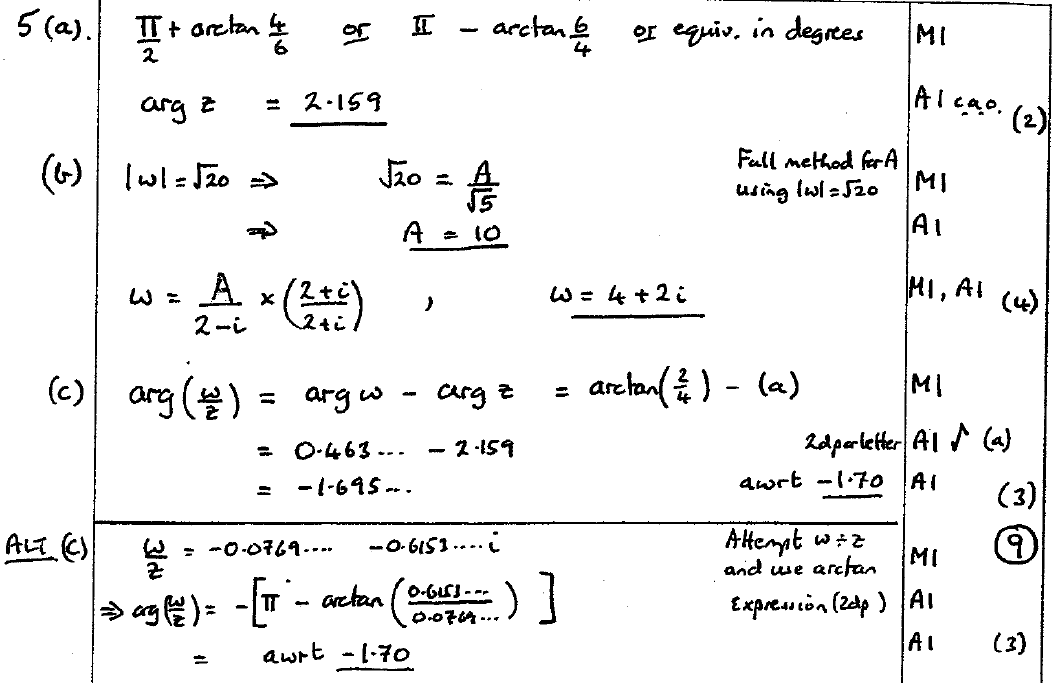 5 (a). π/2 + arctan 4/6 or π - arctan 6/4 or equiv. in degrees M1
arg z = 2.159 A1 c.a.o. (2)
(b) |w| = √20 ⇒ √20 = A/√5 Full method for A using |w| = √20 M1
⇒ A = 10 A1
w = A/(2-i) × ((2+i)/(2+i)) , w = 4 + 2i M1, A1 (4)
(c) arg(w/z) = arg w - arg z = arctan(2/4) - (a) M1
= 0.463... - 2.159 2dp or better A1 √ (a)
= -1.695... awrt -1.70 A1 (3)
ALT (c) w/z = -0.0769.... -0.6153....i Attempt w ÷ z and use arctan M1 (9)
⇒ arg(w/z) = -[π - arctan(0.6153.../0.0769...)] Expression (2dp) A1
= awrt -1.70 A1 (3)